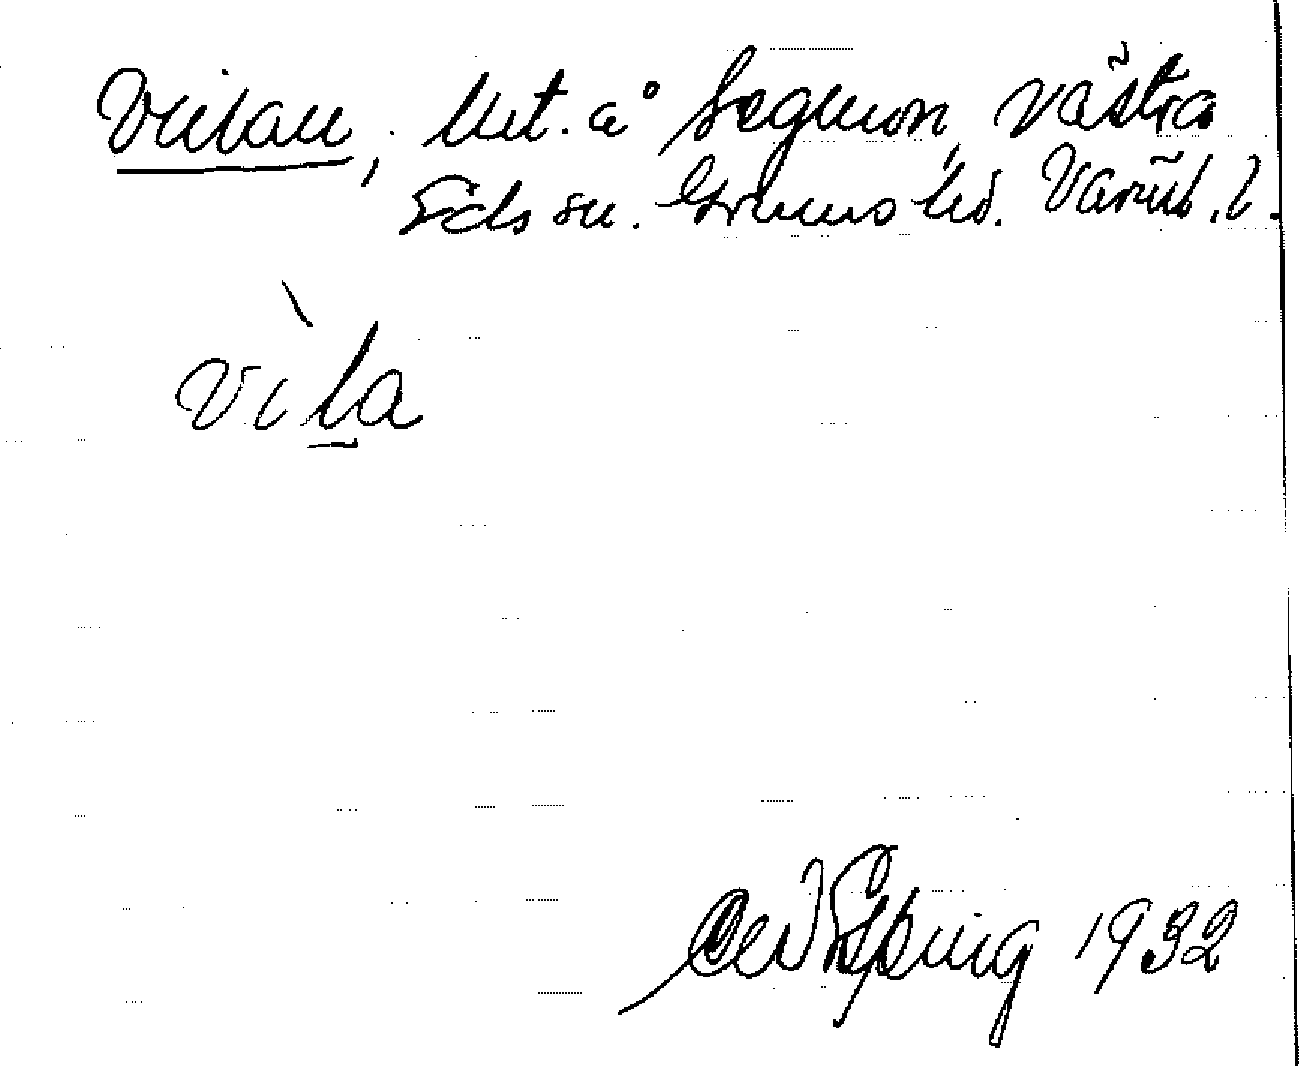 Vilan, lht. å Segmon, Västra
Eds sn. Grums hd. Värml. l.
vìla
1932